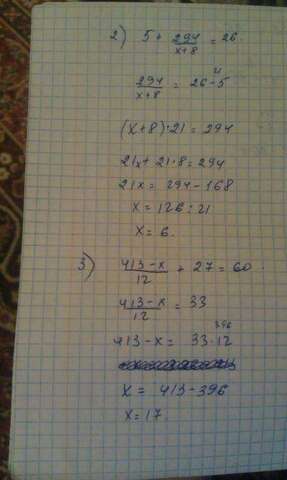 2) 5 + 294/(x+8) = 26.
294/(x+8) = 26-5 21
(x+8)·21 = 294
21x + 21·8 = 294
21x = 294-168
x = 126:21
x = 6.
3) (413-x)/12 + 27 = 60.
(413-x)/12 = 33
413-x = 33·12 396
x = 413-396
x = 17.